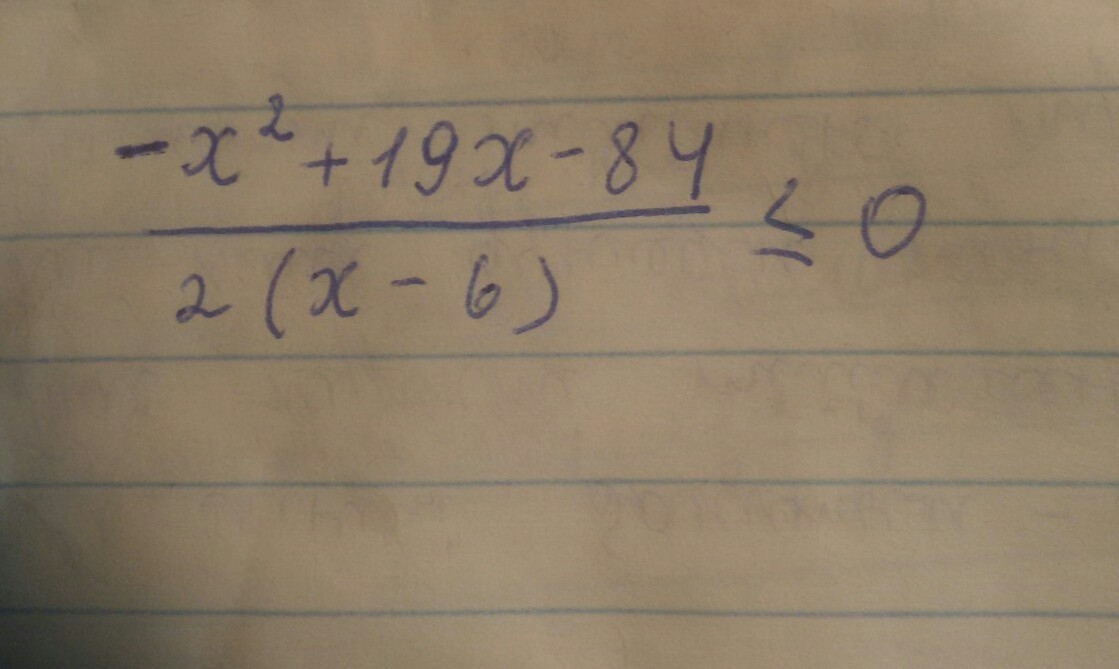 -x² + 19x - 84
2(x - 6)
≤ 0